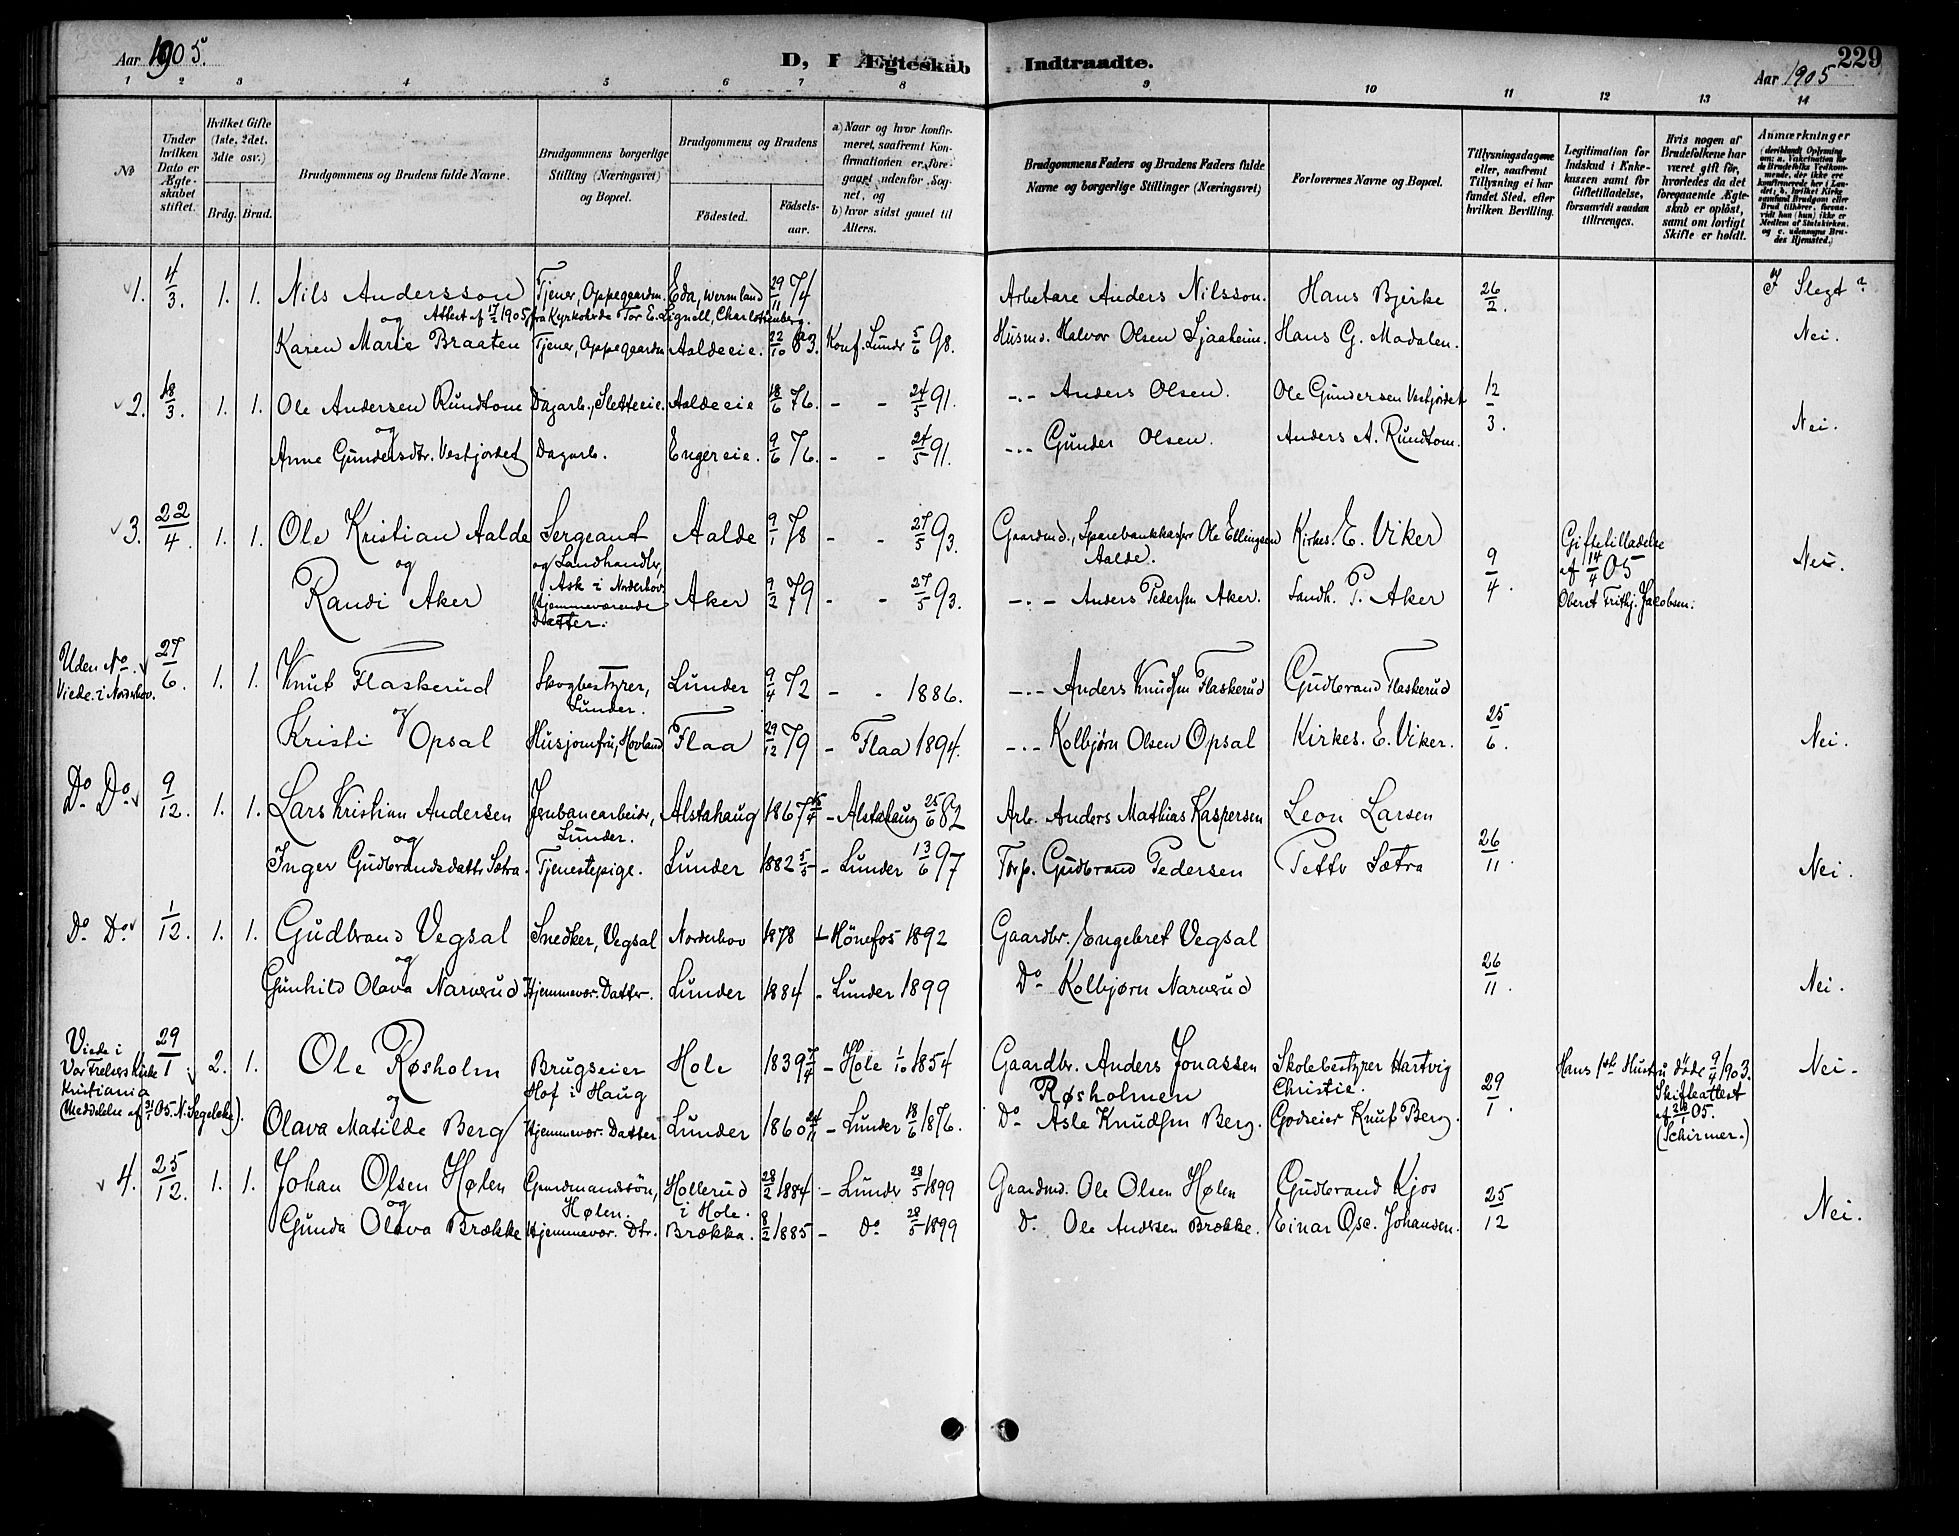 Aar 1905.
D, I Ægteskab Indtraadte.
229
Aar 1905
1 2 3 4 5 6 7 8 9 10 11 12 13 14
No
Under hvilken Dato er Ægteskabet stiftet.
Hvilket Gifte (1ste, 2det, 3die osv.)
Brdg. Brud.
Brudgommens og Brudens fulde Navne.
Brudgommens borgerlige Stilling (Næringsvei) og Bopæl.
Brudgommens og Brudens
Födested.
Födsels-aar.
a) Naar og hvor konfirmeret, saafremt Konfirmationen er foregaaet udenfor Sognet, og
b) hvor sidst gaaet til Alters.
Brudgommens Faders og Brudens Faders fulde Navne og borgerlige Stillinger (Næringsvei)
Forlovernes Navne og Bopæl.
Tillysningsdagene eller, saafremt Tillysning ei har fundet Sted, efter hvilken Bevilling.
Legitimation for Indskud i Enkekassen samt for Giftetilladelse, forsaavidt saadan tiltrænges.
Hvis nogen af Brudefolkene har været gift før, hvorledes da det foregaaende Ægteskab er oplöst, samt om lovligt Skifte er holdt.
Anmærkninger
1. 4/3. 1. 1. Nils Andersson Tjener, Oppegaarden. Eda, Wermland 29/11 74 Arbetare Anders Nilsson. Hans Bjerke 26/2. I Slegt?
og Attest af 17/2 1905, fra Kyrkoherde Tor E. Lignell, Charlottenberg.
Karen Marie Braaten Tjener, Oppegaarden Aaldeeie. 22/10 83. Konf. Lunder 5/6 98. Husmd. Halvor Olsen Sjaaheim. Hans G. Modalen. Nei.
2. 18/3. 1. 1. Ole Andersen Rundtom Dagarb., Sletteeie. Aaldeeie 18/6 76. - - 24/5 91. -.- Anders Olsen. Ole Gundersen Vestjordet 12/3.
og
Anne Gundersdtr. Vestjordet Dagarb. Engereie. 9/6 76. - - 24/5 91. -.- Gunder Olsen. Anders A. Rundtom. Nei.
3. 22/4. 1. 1. Ole Kristian Aalde Sergeant Aalde 9/1 78 - - 27/5 93. Gaardmd., Sparebankkasser Ole Ellingsen Aalde. Kirkes. E. Viker 9/4. Giftetilladelse af 14/4 05 Nei.
og og Landhandler, Ask i Norderhov
Randi Aker Hjemmeværende Datter. Aker 9/2 79 - - 27/5 93. -.- Anders Pedersen Aker. Landh. P. Aker Oberst Frithj. Jacobsen.
Uden No Viede i Norderhov. 27/6. 1. 1. Knut Flaskerud Skogbestyrer, Lunder. Lunder 9/4 72 - - 1886. -.- Anders Knudsen Flaskerud Gudbrand Flaskerud
og
Kristi Opsal Husjomfru, Hovland Flaa 29/12 79 - Flaa 1894. -.- Kolbjørn Olsen Opsal Kirkes. E. Viker. 25/6. Nei.
Do. Do. 9/12. 1. 1. Lars Kristian Andersen Jernbanearbeider, Lunder. Alstahaug 1867 - Alstahaug 25/6 82 Arb. Anders Mathias Kaspersen Leon Larsen
og
Inger Gudbrandsdatter Sætra. Tjenestepige. Lunder 1882 5/5 - Lunder 13/6 97 Torp. Gudbrand Pedersen Petter Sætra 26/11. Nei.
Do. Do. 1/12. 1. 1. Gudbrand Vegsal Snedker, Vegsal Norderhov 1878 - Hönefos 1892 Gaardbr. Engebret Vegsal
og
Gunhild Olava Narverud Hjemmevær. Datter. Lunder 1884 - Lunder 1899 Do. Kolbjørn Narverud 26/11. Nei.
Viede i Vor Frelsers Kirke Kristiania (Meddelelse af 31/1 05. N. Segelcke). 29/1 2. 1. Ole Røsholm Brugseier Hof i Haug Hole 1839 7/4 - Hole 1/10 1854 Gaardbr. Anders Jonassen Røsholmen Skolebestyrer Hartvig Christie. 29/1. Hans 1ste Hustru döde 9/4 1903. Skifteattest af 26/1 05. (Schirmer.) Nei.
og
Olava Matilde Berg Hjemmevær. Datter Lunder 1860 24/11 - Lunder 18/6 1876. Do. Asle Knudsen Berg. Godseier Knut Berg.
4. 25/12. 1. 1. Johan Olsen Hølen Gaardmandssön, Hølen. Hollerud i Hole. 28/2 1884 - Lunder 28/5 1899 Gaardmd. Ole Olsen Hølen Gudbrand Kjos 25/12
og
Gunda Olava Brække Hjemmevær. Dtr. Brækka. 8/2 1885 - Do 28/5 1899 D. Ole Andersen Brække. Einar Osc. Johansen. Nei.